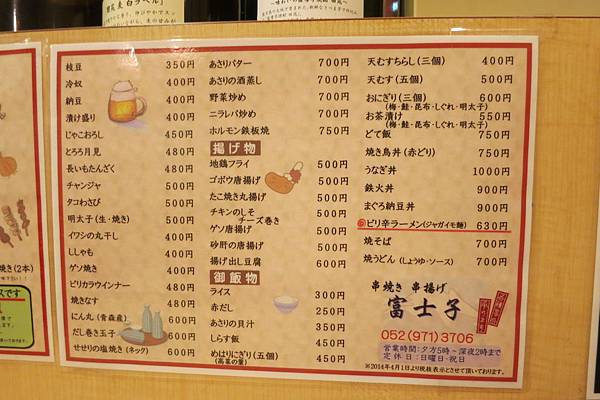 枝豆 350円
冷奴 400円
納豆 400円
漬け盛り 400円
じゃこおろし 450円
とろろ月見 480円
長いもたんざく 480円
チャンジャ 500円
タコわさび 500円
明太子(生・焼き) 500円
イワシの丸干し 400円
ししゃも 400円
ゲソ焼き 400円
ピリカラウインナー 480円
焼きなす 480円
にん丸(青森産) 600円
だし巻き玉子 600円
せせりの塩焼き(ネック) 600円
あさりバター 700円
あさりの酒蒸し 700円
野菜炒め 700円
ニラレバ炒め 700円
ホルモン鉄板焼 750円
揚げ物
地鶏フライ 500円
ゴボウ唐揚げ 500円
たこ焼き丸揚げ 500円
チキンのしそ
チーズ巻き 500円
ゲソ唐揚げ 500円
砂肝の唐揚げ 500円
揚げ出し豆腐 600円
御飯物
ライス 300円
赤だし 250円
あさりの貝汁 350円
しらす飯 450円
めはりにぎり(五個) 450円
(高菜の葉)
天むすちらし(三個) 400円
天むす(五個) 500円
おにぎり(三個) 600円
(梅・鮭・昆布・しぐれ・明太子)
お茶漬け 550円
(梅・鮭・昆布・しぐれ・明太子)
どて飯 750円
焼き鳥丼(赤どり) 750円
うなぎ丼 1000円
鉄火丼 900円
まぐろ納豆丼 900円
ピリ辛ラーメン(ジャガイモ麺) 630円
焼そば 700円
焼うどん(しょうゆ・ソース) 700円
串焼き 串揚げ
富士子
052(971)3706
営業時間:夕方5時~深夜2時まで
定休日:日曜日・祝日
※2014年4月1日より税抜表示とさせて頂いております。
焼き(2本)